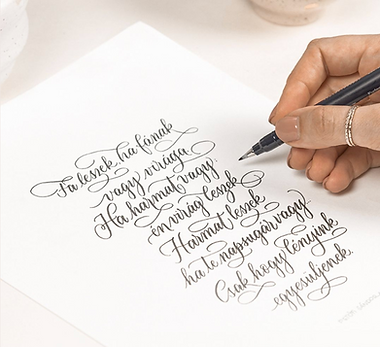 Fa leszek, ha fának
vagy virága.
Ha harmat vagy:
én virág leszek.
Harmat leszek
ha te napsugár vagy
Csak hogy lényink
egyesüljenek.